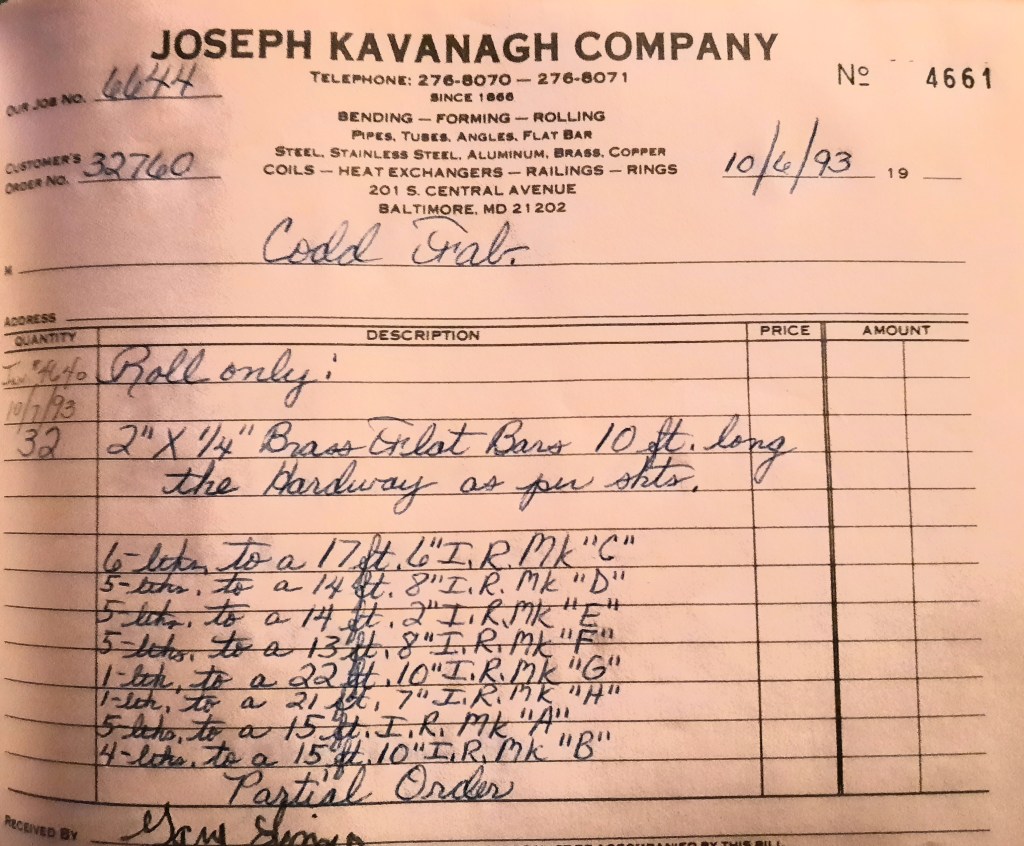 JOSEPH KAVANAGH COMPANY
TELEPHONE: 276-8070 — 276-8071
SINCE 1866
BENDING — FORMING — ROLLING
PIPES, TUBES, ANGLES, FLAT BAR
STEEL, STAINLESS STEEL, ALUMINUM, BRASS, COPPER
COILS — HEAT EXCHANGERS — RAILINGS — RINGS
201 S. CENTRAL AVENUE
BALTIMORE, MD 21202
OUR JOB NO. 6644
No 4661
CUSTOMER'S
ORDER NO. 32760
10/6/93 19
M Codd Fab.
ADDRESS
QUANTITY DESCRIPTION PRICE AMOUNT
Inv. #4640 Roll only:
10/7/93
32 2" X 1/4" Brass Flat Bars 10 ft. long
the Hardway as per shts.
6-lths. to a 17 ft. 6" I.R. Mk "C"
5-lths. to a 14 ft. 8" I.R. Mk "D"
5-lths. to a 14 ft. 2" I.R. Mk "E"
5-lths. to a 13 ft. 8" I.R. Mk "F"
1-lth. to a 22 ft. 10" I.R. Mk "G"
1-lth. to a 21 ft. 7" I.R. Mk "H"
5-lths. to a 15 ft. I.R. Mk "A"
4-lths. to a 15 ft. 10" I.R. Mk "B"
Partial Order
RECEIVED BY
ACCOMPANIED BY THIS BILL